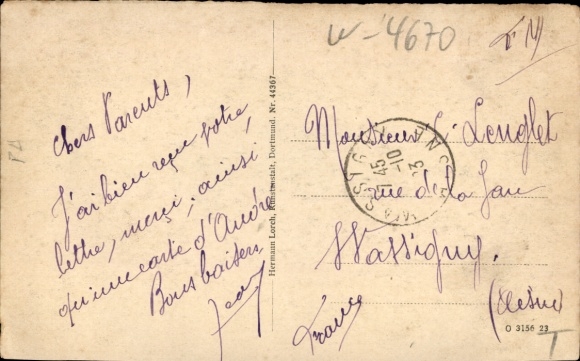 W-4670
F.M
Chers Parents,
J'ai bien reçu votre
lettre, merci, ainsi
qu'une carte d'André
Bons baisers
Jean
Hermann Lorch, Kunstanstalt, Dortmund. Nr. 44367
Monsieur C. Lenglet
rue de la Gare
Wassigny.
(Aisne)
France
O 3156 23
T